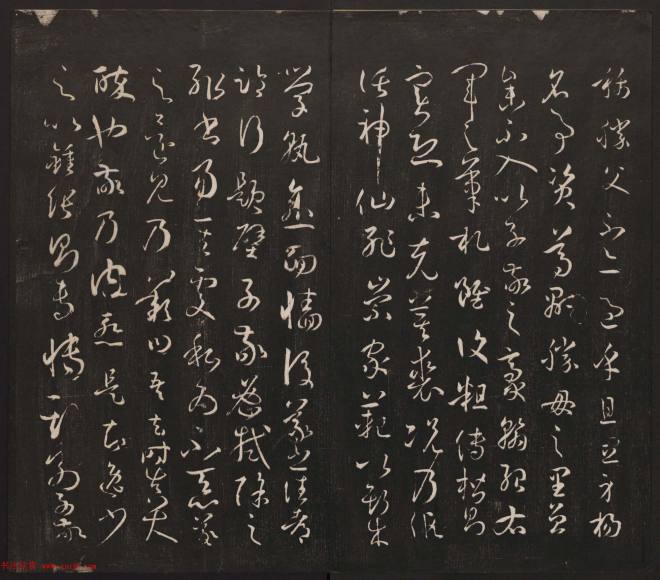 稱勝父不亦過乎且立身揚
名事資尊顯勝母之里曾
參不入以子敬之豪翰紹右
軍之筆札雖復粗傳楷則
實恐未克箕裘況乃假
託神仙恥崇家範以斯成
學孰愈面牆後羲之往都
臨行題壁子敬密拭除之
輒書易其處私為不惡羲
之還見乃歎曰吾去時真大
醉也敬乃內慙是知逸少
之比鍾張則專博斯別子敬